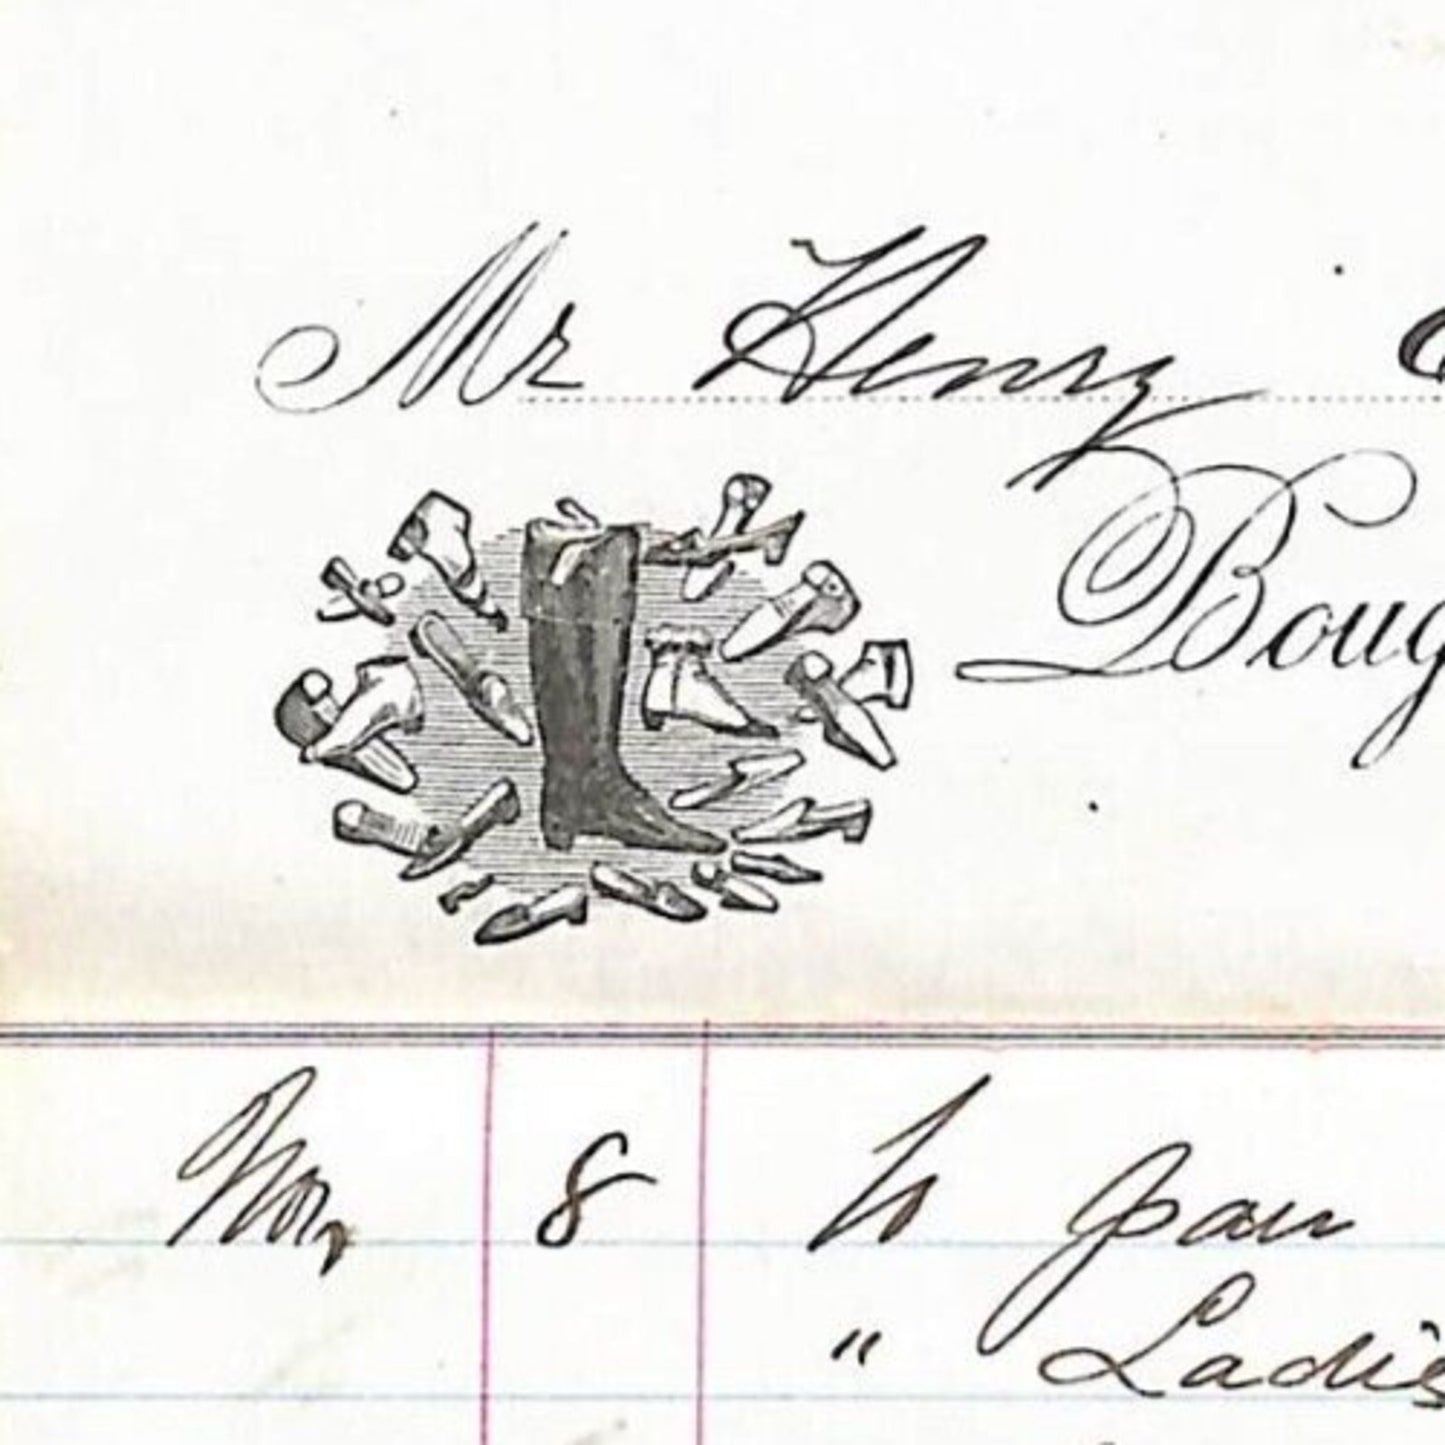 Mr Henry
Boug
Nov, 8 To pair
" Ladies